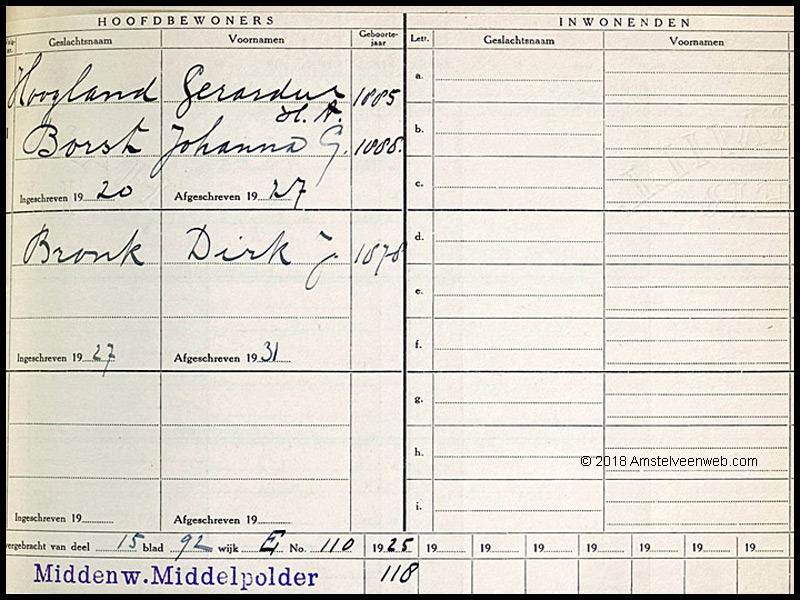 HOOFDBEWONERS INWONENDEN
Geslachtsnaam Voornamen Geboorte-jaar Lett. Geslachtsnaam Voornamen
Hoogland Gerardus 1885 a.
H. A.
Borst Johanna G. 1888. b.
c.
Ingeschreven 19 20 Afgeschreven 19 27
Bronk Dirk J. 1878 d.
e.
Ingeschreven 19 27 Afgeschreven 19 31 f.
g.
h.
© 2018 Amstelveenweb.com
i.
Ingeschreven 19 Afgeschreven 19
vergebracht van deel 15 blad 92 wijk E No. 110 1925 19 19 19 19 19 19 19
Middenw. Middelpolder 118